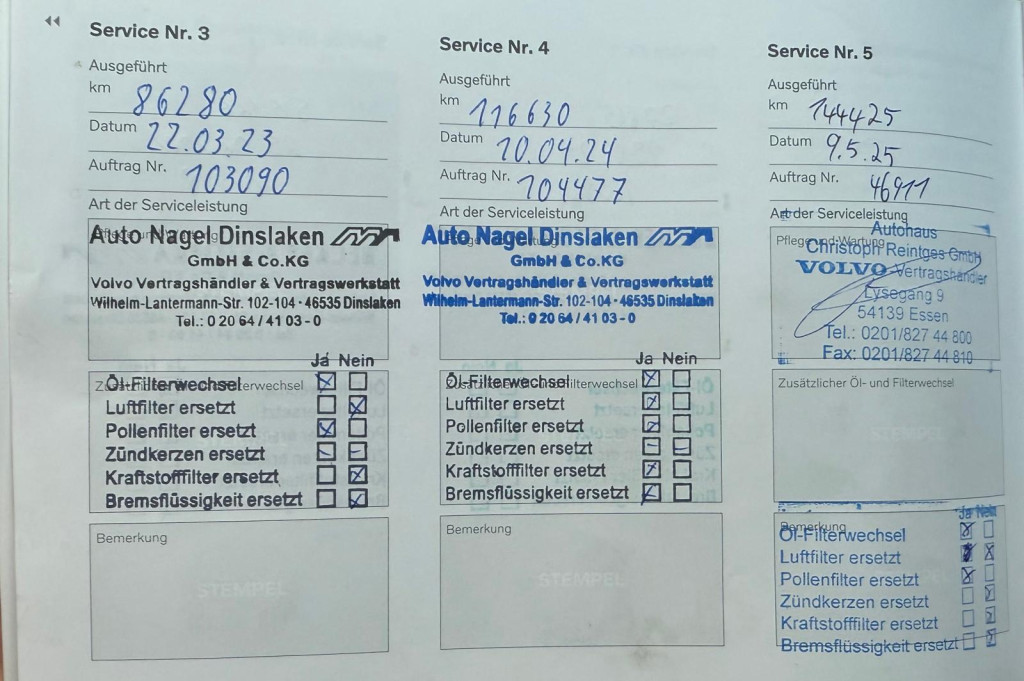 Service Nr. 3
Ausgeführt
km 86280
Datum 22.03.23
Auftrag Nr. 103090
Art der Serviceleistung
Auto Nagel Dinslaken
GmbH & Co.KG
Volvo Vertragshändler & Vertragswerkstatt
Wilhelm-Lantermann-Str. 102-104 · 46535 Dinslaken
Tel.: 0 20 64 / 41 03 - 0
Ja Nein
Öl-Filterwechsel
Luftfilter ersetzt
Pollenfilter ersetzt
Zündkerzen ersetzt
Kraftstofffilter ersetzt
Bremsflüssigkeit ersetzt
Bemerkung
STEMPEL
Service Nr. 4
Ausgeführt
km 116630
Datum 10.04.24
Auftrag Nr. 104477
Art der Serviceleistung
Auto Nagel Dinslaken
GmbH & Co.KG
Volvo Vertragshändler & Vertragswerkstatt
Wilhelm-Lantermann-Str. 102-104 · 46535 Dinslaken
Tel.: 0 20 64 / 41 03 - 0
Ja Nein
Öl-Filterwechsel
Luftfilter ersetzt
Pollenfilter ersetzt
Zündkerzen ersetzt
Kraftstofffilter ersetzt
Bremsflüssigkeit ersetzt
Bemerkung
STEMPEL
Service Nr. 5
Ausgeführt
km 144425
Datum 9.5.25
Auftrag Nr. 46911
Art der Serviceleistung
Pflege und Wartung
Autohaus
Christoph Reintges GmbH
VOLVO Vertragshändler
Lysegang 9
54139 Essen
Tel.: 0201/827 44 800
Fax: 0201/827 44 810
Zusätzlicher Öl- und Filterwechsel
STEMPEL
Bemerkung
Ja Nein
Öl-Filterwechsel
Luftfilter ersetzt
Pollenfilter ersetzt
Zündkerzen ersetzt
Kraftstofffilter ersetzt
Bremsflüssigkeit ersetzt